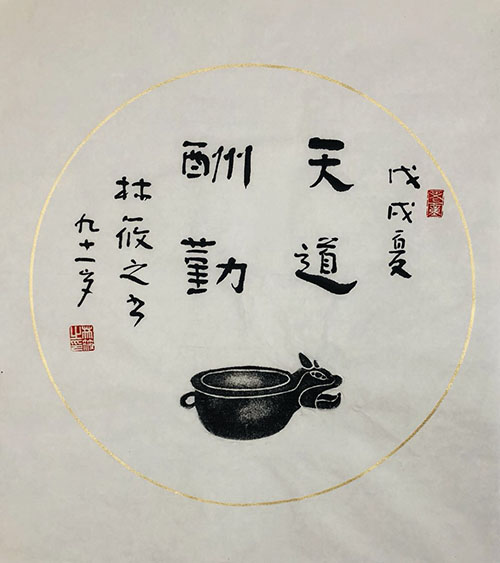 戊戌夏
天道
酬勤
林筱之书
九十一岁